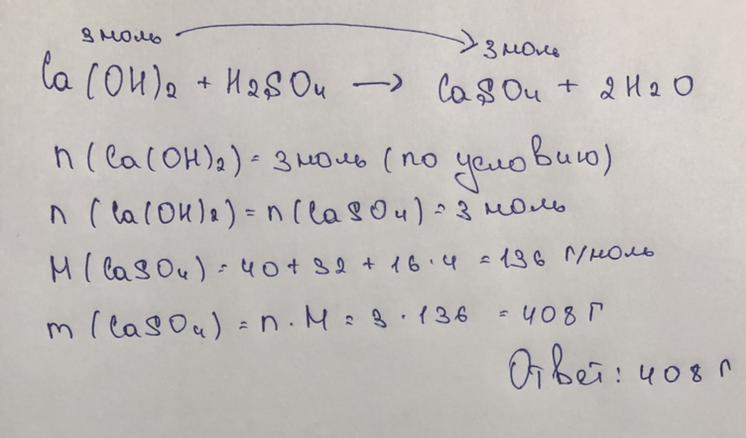 3 моль 3 моль
Ca(OH)2 + H2SO4 → CaSO4 + 2H2O
n(Ca(OH)2) = 3 моль (по условию)
n(Ca(OH)2) = n(CaSO4) = 3 моль
M(CaSO4) = 40 + 32 + 16 · 4 = 136 г/моль
m(CaSO4) = n · M = 3 · 136 = 408 г
Ответ: 408 г